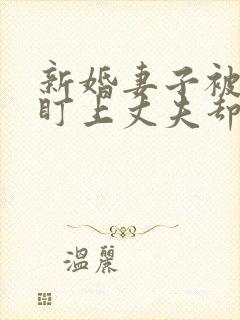 新婚妻子被
盯上丈夫却
温麗